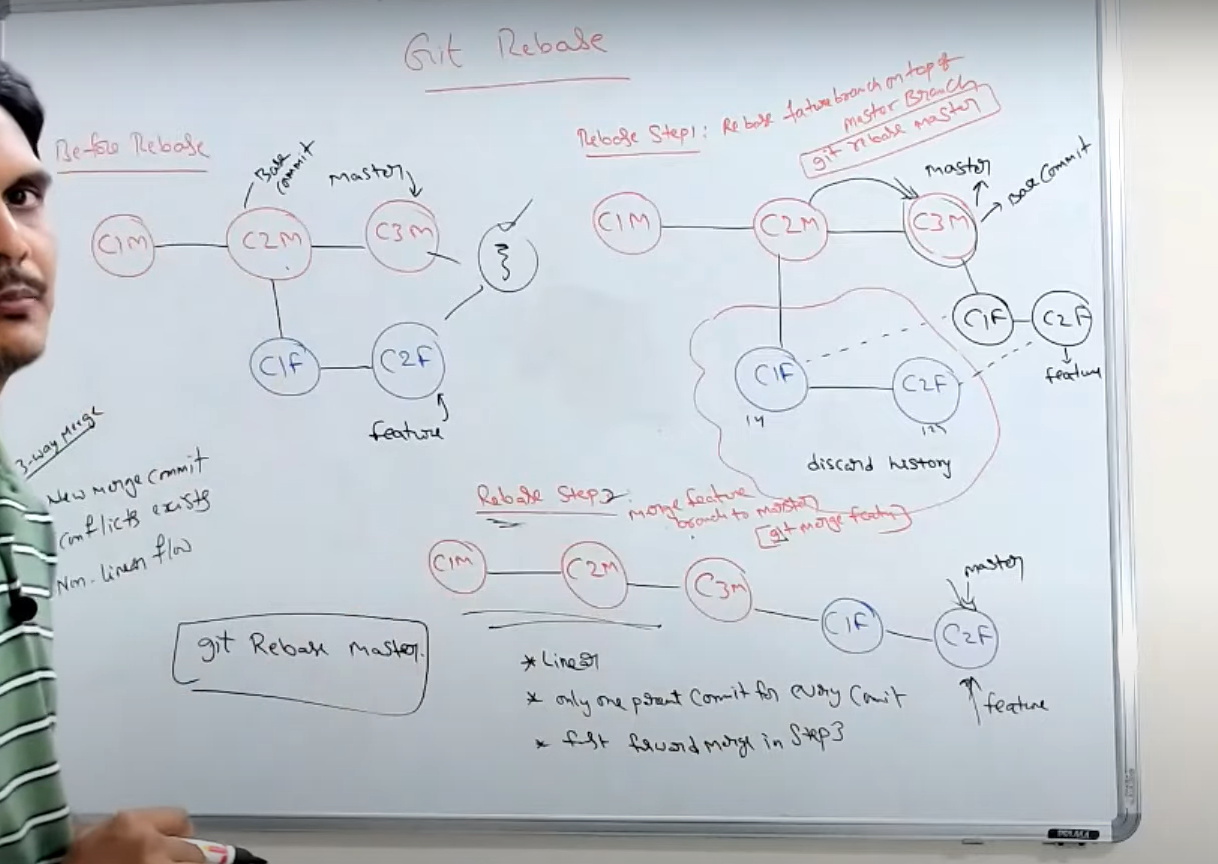 Git Rebase
Before Rebase
Base
commit
master
C1M
C2M
C3M
C1F
C2F
feature
3-way merge
New merge commit
conflicts exists
Non-linear flow
git Rebase master.
Rebase Step1: Rebase fature branch on top of
master Branch
git rebase master
C1M
C2M
C3M
master
Base Commit
C1F
C2F
feature
C1F
C2F
discard history
Rebase Step2: merge feature
branch to master
[git merge feature]
C1M
C2M
C3M
C1F
C2F
master
feature
* Linear
* only one parent Commit for every Commit
* fast forward merge in Step3